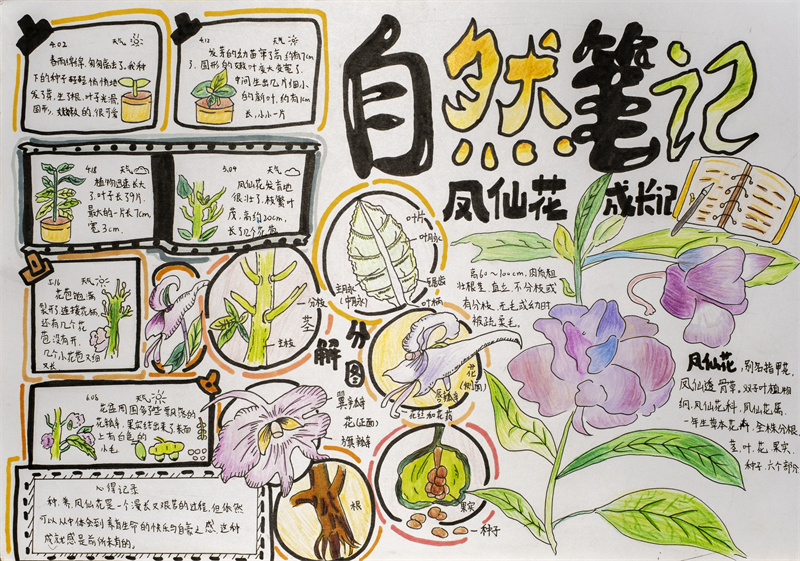 自然笔记
凤仙花 成长记
4.02 天气
春雨绵绵,匆匆落去了,我种
下的种子轻轻悄悄地
发了芽,生了根,叶子光滑,
圆形,嫩嫩的很可爱
4.12 天气
发芽的幼苗茎了高约有7c
m,圆形的嫩叶变大变宽了,
中间生出几片细小
的新叶,约有1cm
长,小小一片
4.18 天气
植物迅速长大
了,叶子长了9片,
最大的一片长7cm
宽3cm.
5.04 天气
凤仙花发育地
很壮了,枝繁叶
茂,高约20cm,
长了几个花苞
5.16 天气
花苞饱满
裂形,连接花柄,
还有几个花
苞没有开,
几个小花苞又细
又长
6.06 天气
花盆周围多了些要凤落的
花瓣,果实结出来了,表面
上有白色的
小毛
心得记录
种养凤仙花是一个漫长又艰苦的过程,但依然
可以从中体会到养育生命的快乐与自豪之感,这种
成就感是前所未有的。
叶片
叶脉
锯齿
叶柄
主脉
(中脉)
分枝
茎
主枝
解
分
图
花
(侧面)
唇瓣
花丝和花药
翼瓣
花(正面)
旗瓣
根
果实
种子
高60~100cm,肉质粗
壮根茎,直立,不分枝或
有分枝,无毛或幼时
被疏柔毛。
凤仙花,别名指甲花、
凤仙透骨草,双子叶植物
纲、凤仙花科、凤仙花属、
一年生草本花卉,全株分根、
茎、叶、花、果实、
种子,六个部分